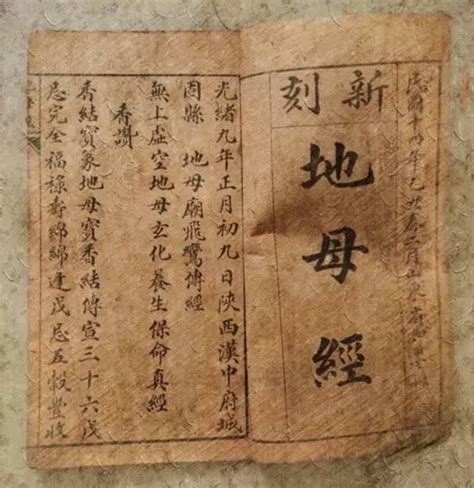 民國十四年乙丑春二月山東省
新刻
地母經
光緒九年正月初九日陝西漢中府城
固縣 地母廟飛鸞傳經
無上虛空地母玄化養生保命真經
香讚
香結寶象地母寶香結傳宣三十六戊
忌完全福祿壽綿綿逢戊忌五穀豐收